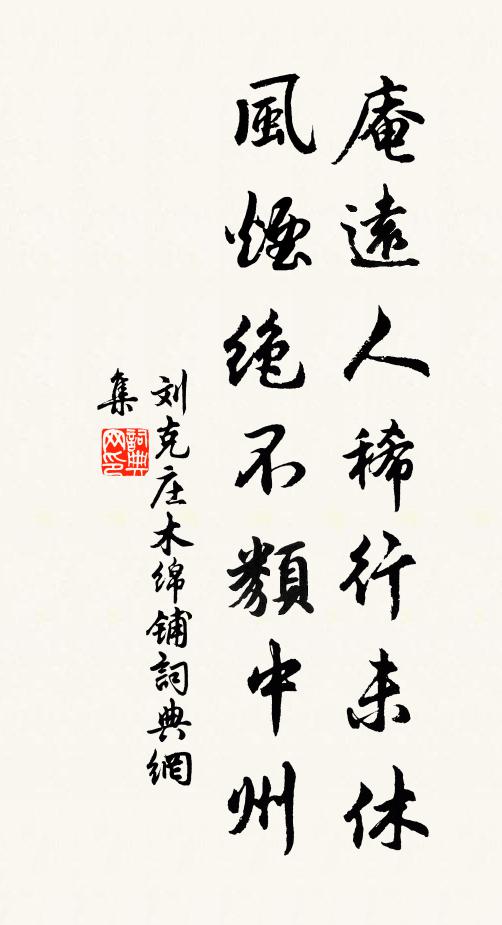 庵遠人稀行未休
風煙絕不類中州
刘克庄木绵铺詞典網
集
詞典网印